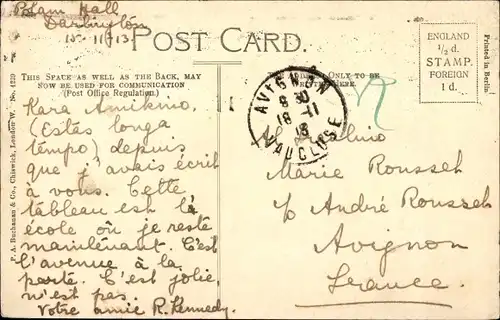 Polam Hall
Darlington
15-11-13
POST CARD.
ENGLAND
1/2 d.
STAMP.
FOREIGN
1 d.
Printed in Berlin.
THIS SPACE AS WELL AS THE BACK, MAY
NOW BE USED FOR COMMUNICATION
(Post Office Regulation)
ONLY TO BE
HERE.
P. A. Buchanan & Co., Chiswick, London W. No. 4129
AVIGNON
8 30
18 -11
13
VAUCLUSE
Kara Amikino,
(Estas longa
tempo) depuis
que j'avais écrit
à vous. Cette
tableau est l'é
école où je reste
maintenant. C'est
l'avenue à la
porte. C'est jolie,
n'est pas.
Votre amie R. Kennedy.
Al Fraŭlino
Marie Rousset
c/o André Rousset
Avignon
France.